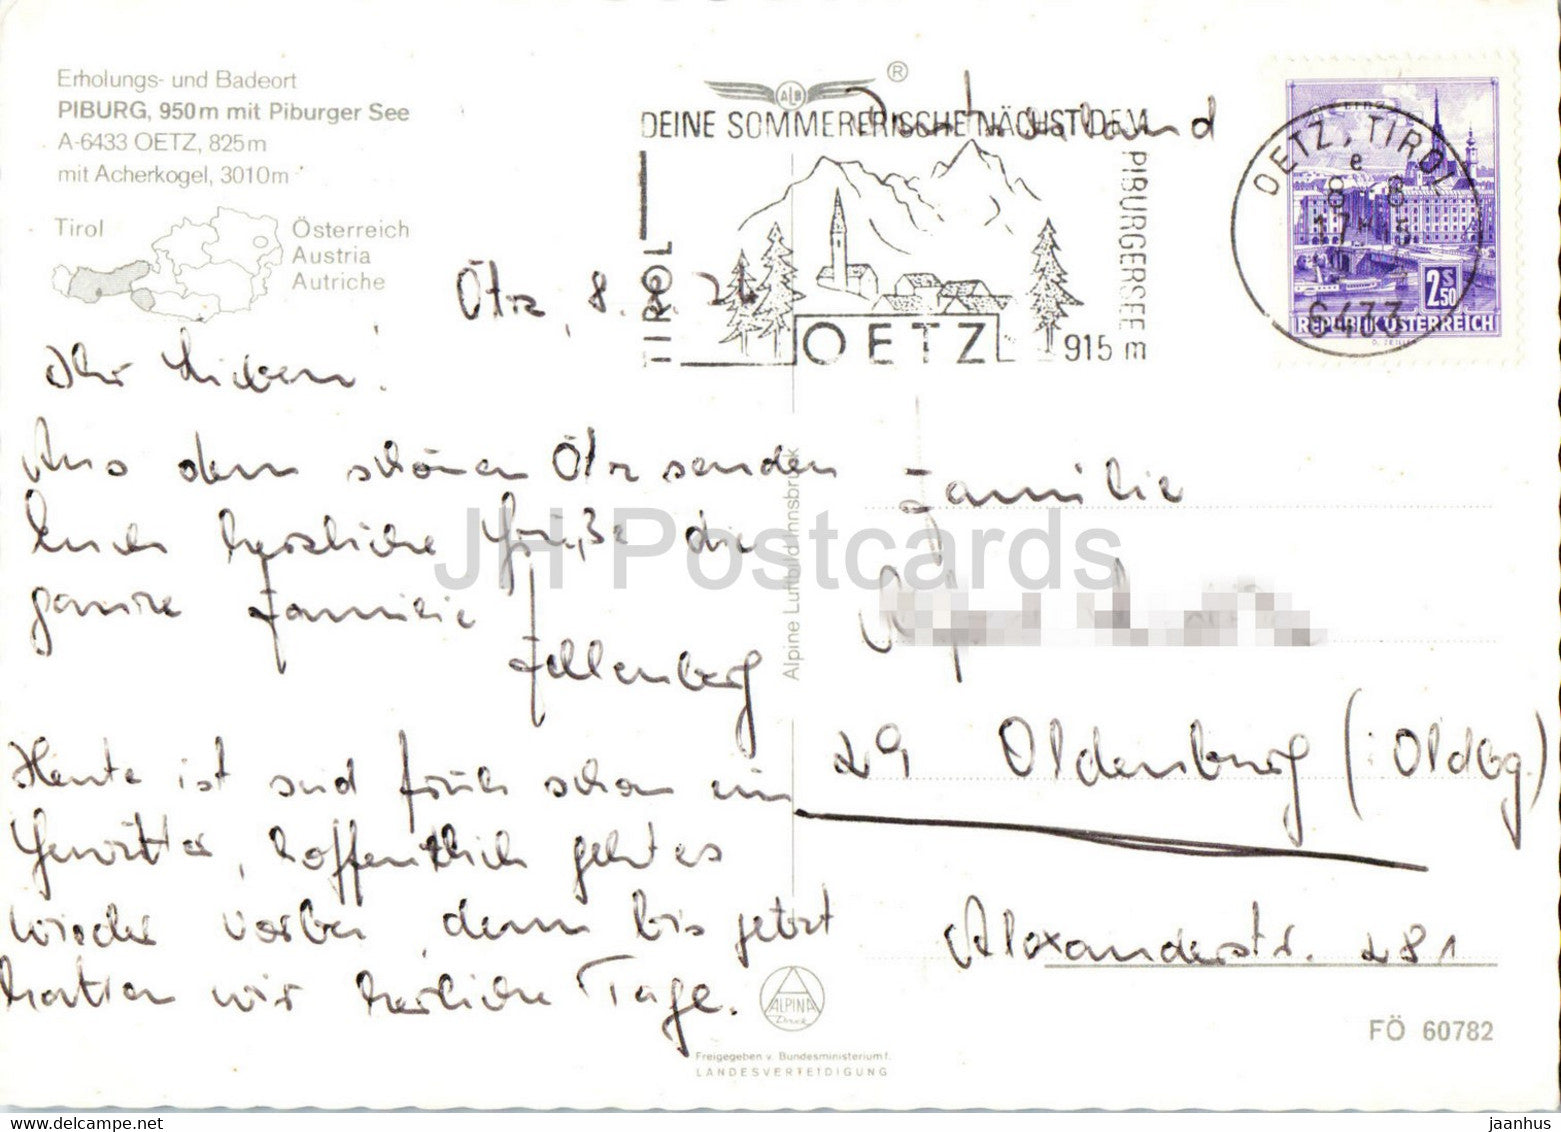 Erholungs- und Badeort
PIBURG, 950m mit Piburger See
A-6433 OETZ, 825m
mit Acherkogel, 3010m
Tirol
Österreich
Austria
Autriche
ALB
®
DEINE SOMMERFRISCHE NÄCHST DEM
PIBURGERSEE
TIROL
OETZ
915 m
Deutschland
OETZ, TIROL
e
8 - 8
17
6433
2S
50
REPUBLIK ÖSTERREICH
Ötz, 8. 8.
Ihr Lieben!
Aus dem schönen Ötz senden
Euch herzliche Grüße die
ganze Familie
Fellenberg
Heute ist früh schon ein
Gewitter, hoffentlich geht es
wieder vorbei, denn bis jetzt
hatten wir herrliche Tage.
Alpine Luftbild Innsbruck
Familie
29 Oldenburg (:Oldbg.)
Alexanderstr. 281
ALPINA
Druck
Freigegeben v. Bundesministerium f.
LANDESVERTEIDIGUNG
FÖ 60782
JH Postcards
jaanhus